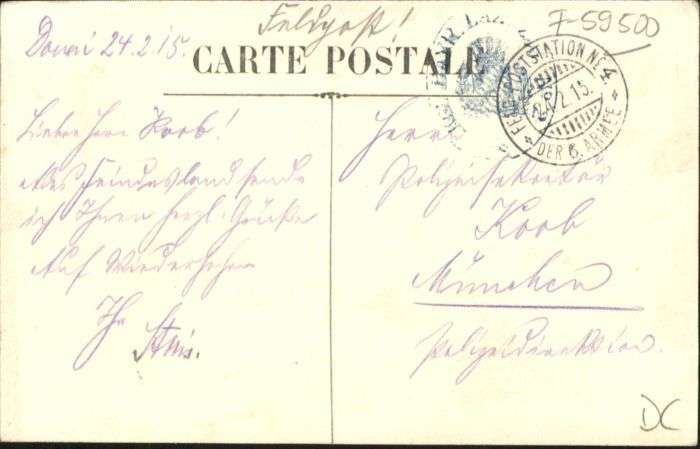 Feldpost!
7-59500
Douai 24.2.15.
CARTE POSTALE
FELD-POSTSTATION No 4.
2.15.
DER 6. ARMEE
Lieber Herr Koob!
Aus Feindesland sende
ich Ihnen herzl. Grüße
Auf Wiedersehen
Ihr
Herrn
Polizeisekretär
Koob
München
Polizeidirektion.
DC